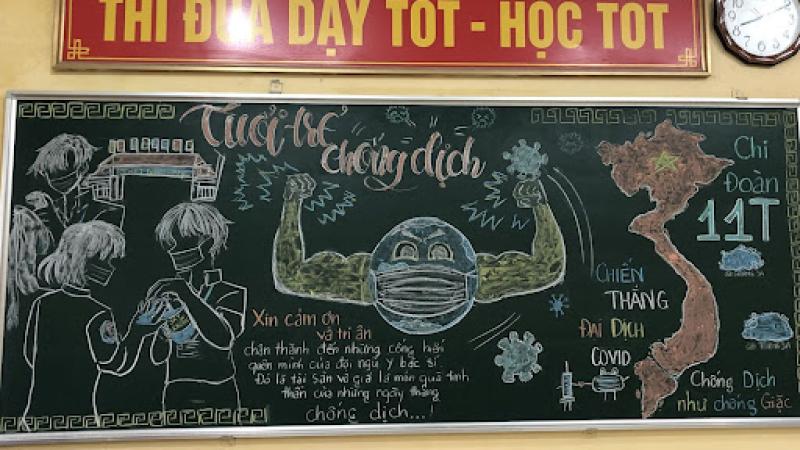 THI ĐUA DẠY TỐT - HỌC TỐT
Tuổi trẻ
chống dịch
Chi
Đoàn
11T
CHIẾN
THẮNG
ĐẠI DỊCH
COVID
Xin cảm ơn
và tri ân
chân thành đến những cống hiến
quên mình của đội ngũ y bác sĩ
Đó là tài sản vô giá là món quà tinh
thần của những ngày tháng
chống dịch...!
Chống Dịch
như chống Giặc